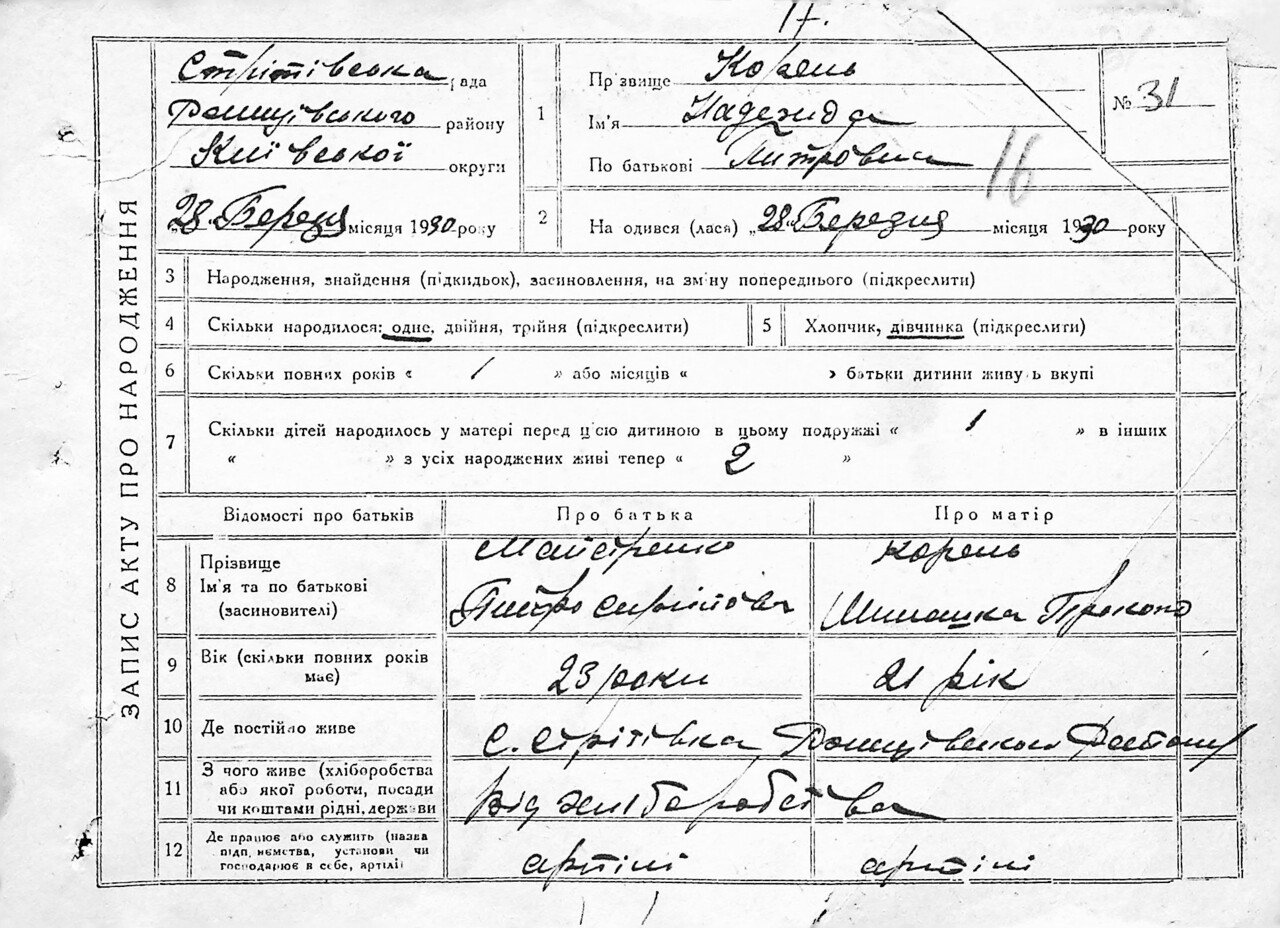 17.
Стрітівська рада
району
Київської округи
28 Березня місяця 1930 року
1
Прізвище Корень
Ім'я Надежда
По батькові Питровна
16
№ 31
2
На одився (лася) „28" Березня місяця 1930 року
ЗАПИС АКТУ ПРО НАРОДЖЕННЯ
3 Народження, знайдення (підкидьок), засиновлення, на зм ну попереднього (підкреслити)
4 Скільки народилося: одне, двійня, трійня (підкреслити)
5 Хлопчик, дівчинка (підкреслити)
6 Скільки повних років « 1 » або місяців « » батьки дитини живу ь вкупі
7 Скільки дітей народилось у матері перед ц'єю дитиною в цьому подружжі « 1 » в інших
« » з усіх народжених живі тепер « 2 »
Відомості про батьків
Про батька
Про матір
8
Прізвище
Ім'я та по батькові
(засиновителі)
Майстренко
Питро
Корень
Прокопо
9
Вік (скільки повних років
має)
23 роки
21 рік
10 Де постійно живе
с. Стрітівка
11
З чого живе (хліборобства
або якої роботи, посади
чи коштами рідні, держави
від хліборобства
12
Де працює або служить (назва
підп иємства, установи чи
господарює в себе, артілі)
артілі
артілі